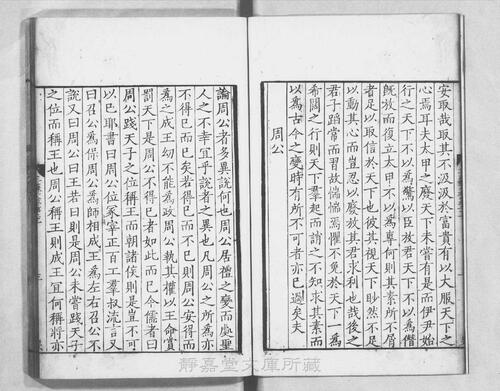 安取哉取其不汲汲於富貴有以大服天下之
心焉耳夫太甲之廢天下未嘗有是而伊尹始
行之天下不以為驚以臣放君天下不以為僭
既放而復立太甲不以為專何則其素所不屑
者足以取信於天下也彼其視天下眇然不足
以動其心而豈忍以廢放其君求利也哉後之
君子蹈常而習故惴惴焉懼不免於天下一為
希闊之行則天下羣起而誚之不知求其素而
以為古今之變時有所不可者亦已過矣夫
周公
論周公者多異說何也周公居禮之變而處聖
人之不幸宜乎說者之異也凡周公之所為亦
不得已而已矣若得已而不已則周公安得而
為之成王幼不能為政周公執其權以王命賞
罰天下是周公不得已者如此而已今儒者曰
周公踐天子之位稱王而朝諸侯則是豈不可
以已耶書曰周公位冢宰正百工羣叔流言又
曰召公為保周公為師相成王為左右召公不
說又曰周公曰王若曰則是周公未嘗踐天子
之位而稱王也周公稱王則成王宜何稱將亦
靜嘉堂文庫所藏